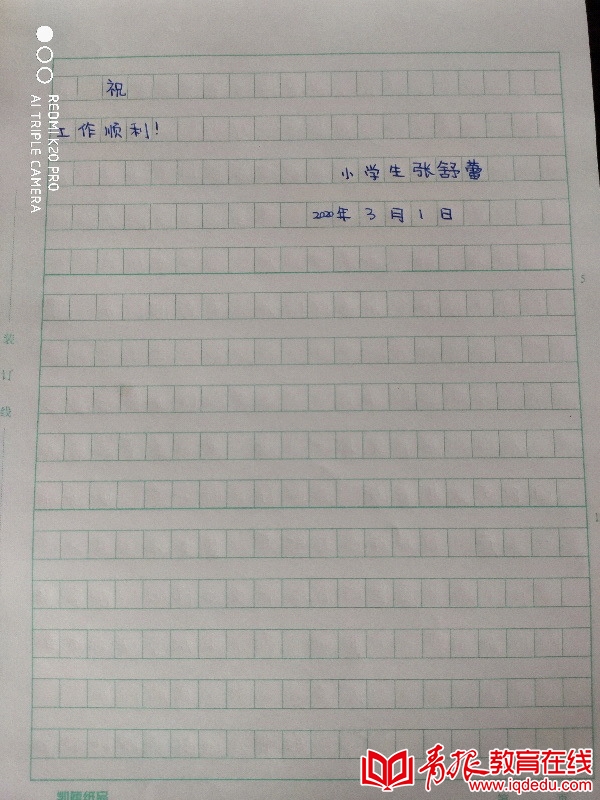 祝
工作顺利!
小学生张舒蕾
2020年3月1日
REDMI K20 PRO
AI TRIPLE CAMERA
装
订
线
5
1
青报教育在线
www.iqdedu.com